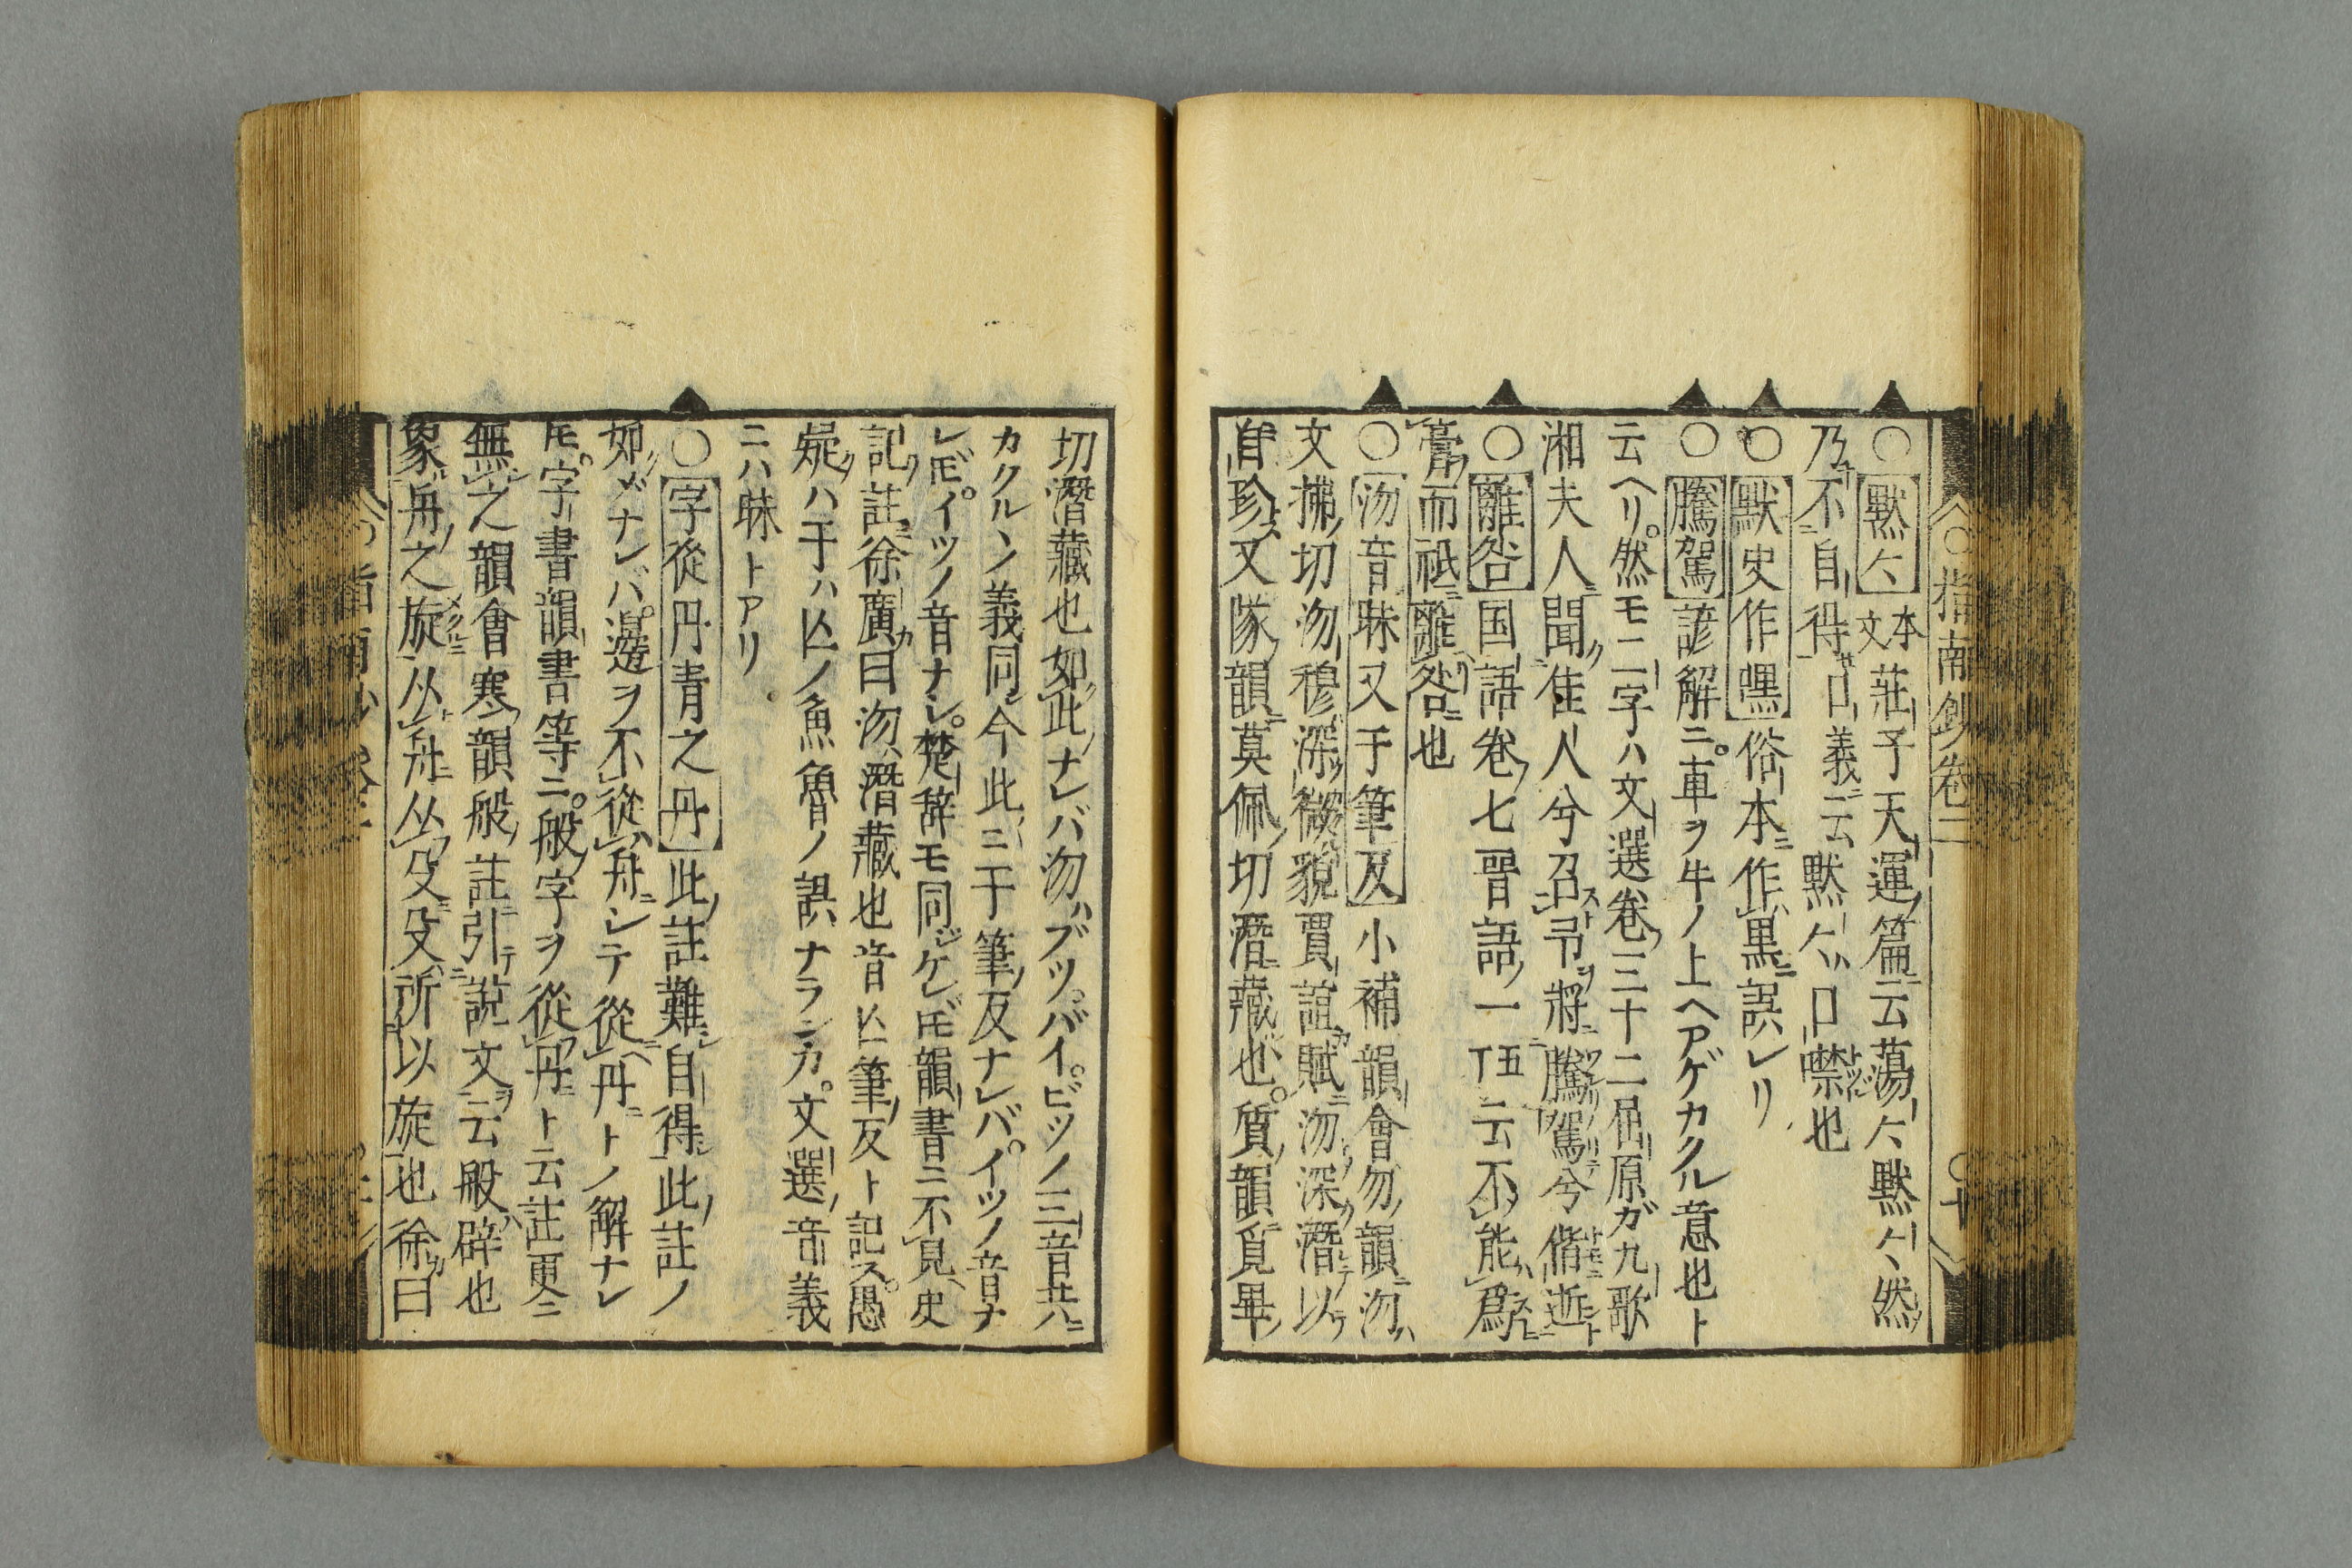 指南鈔卷二
○默々 本文 莊子天運篇云蕩々默々然
乃不自得 口義云默々ハ口噤也
○默史作嘿 俗本作黒誤レリ
○騰駕 諺解ニ車ヲ牛ノ上ヘアゲカクル意也ト
云ヘリ然モ二字ハ文選卷三十二屈原ガ九歌
湘夫人聞佳人兮召予將騰駕兮偕逝
○離咎 国語卷七晋語一 云不能爲
膏而祗離咎也
○沕音昧又于筆反 小補韻會勿韻沕
文拂切沕穆深微貌賈誼賦沕深潛以
自珍又隊韻莫佩切潛藏也質韻覓畢
切潛藏也如此ナレバ沕ハブツバイビツノ三音共ニ
カクルヽ義同今此ニ于筆反ナレバイツノ音ナ
レ𪜈イツノ音ナシ楚辞モ同ジケレ𪜈韻書ニ不見史
記註徐廣曰沕潛藏也音亾筆反ト記ス愚
疑ハ于ハ亾ノ魚魯ノ誤ナランカ文選音義
ニハ昧トアリ
○字從丹青之丹 此註難自得此註ノ
如ンバナレバ邉ヲ不從舟シテ從丹トノ解ナレ
𪜈字書韻書等ニ般字ヲ從丹ト云註更ニ
無之韻會寒韻般註引說文云般辟也
象舟之旋从舟从殳殳所以旋也徐曰